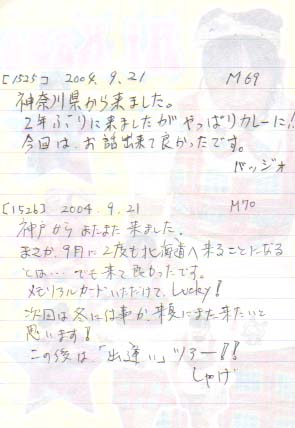 [1525] 2004.9.21 M69
神奈川県から来ました。
2年ぶりに来ましたがやっぱりカレーに!!
今回は、お話出来て良かったです。
バッジオ
[1526] 2004.9.21 M70
神戸からまたまた来ました。
まさか、9月に2度も北海道へ来ることになる
とは… でも来て良かったです。
メモリアルカードいただけて、Lucky!
次回は冬に仕事か、来夏にまた来たいと
思います!
この後は「出逢い」ツアー!!
しゃけ